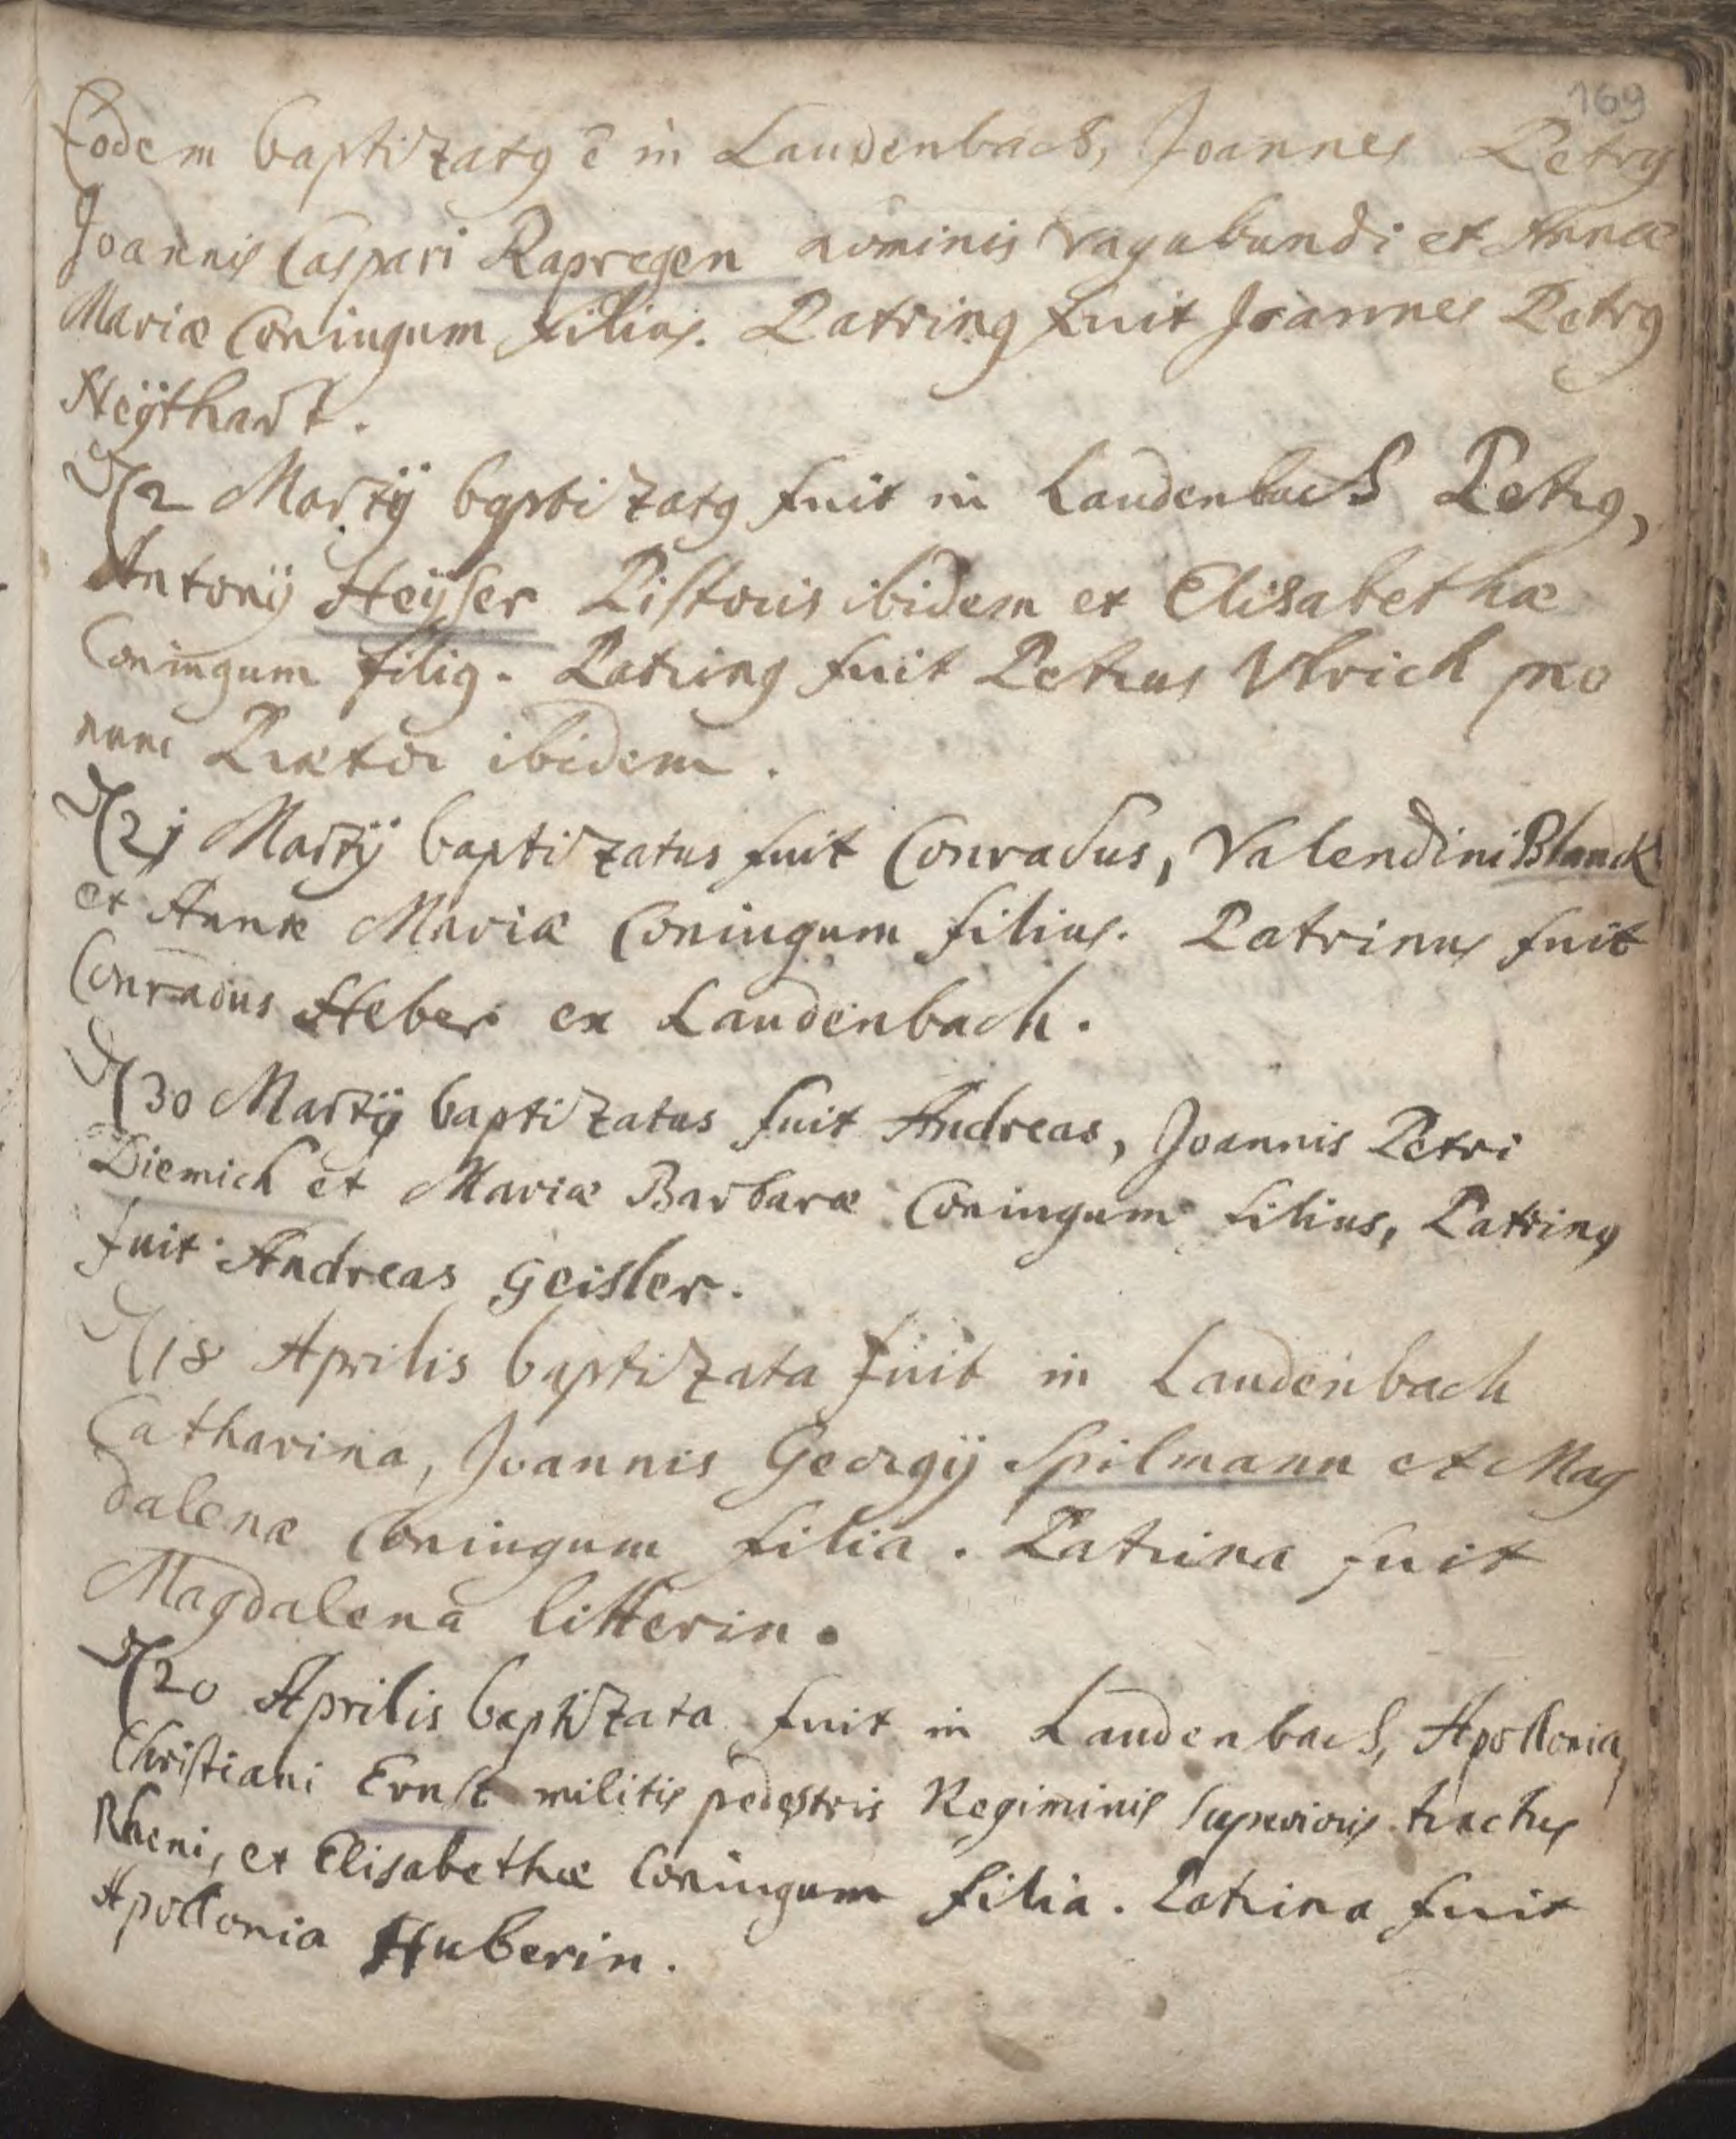 169
Eodem baptizatꝰ ē in Laudenbach, Joannes Petrꝰ
Joannis Caspari Rapregen nominis vagabundi et Annæ
Mariæ Coniugum filius. Patrinꝰ fuit Joannes Petrꝰ
Neÿthardt.
2 Martÿ baptizatꝰ fuit in Laudenbach Petrꝰ,
Antonÿ Heÿser Pistoris ibidem et Elisabethæ
Coniugum filiꝰ. Patrinꝰ fuit Petrus Vlrich pro
nunc Prætor ibidem.
21 Martÿ baptizatus fuit Conradus, Valendini Blanck
et Annæ Mariæ Coniugum filius. Patrinus fuit
Conradus Heber ex Laudenbach.
30 Martÿ baptizatus fuit Andreas, Joannis Petri
Diemich et Mariæ Barbaræ Coniugum filius, Patrinꝰ
fuit Andreas Geisler.
18 Aprilis baptizata fuit in Laudenbach
Catharina, Joannis Georgÿ Spilmann et Mag
dalenæ Coniugum filia. Patrina fuit
Magdalena Litterin.
20 Aprilis baptizata fuit in Laudenbach, Apollonia,
Christiani Ernst militis pedestris Regiminis superioris tractus
Rheni, et Elisabethæ Coniugum filia. Patrina fuit
Apollonia Huberin.